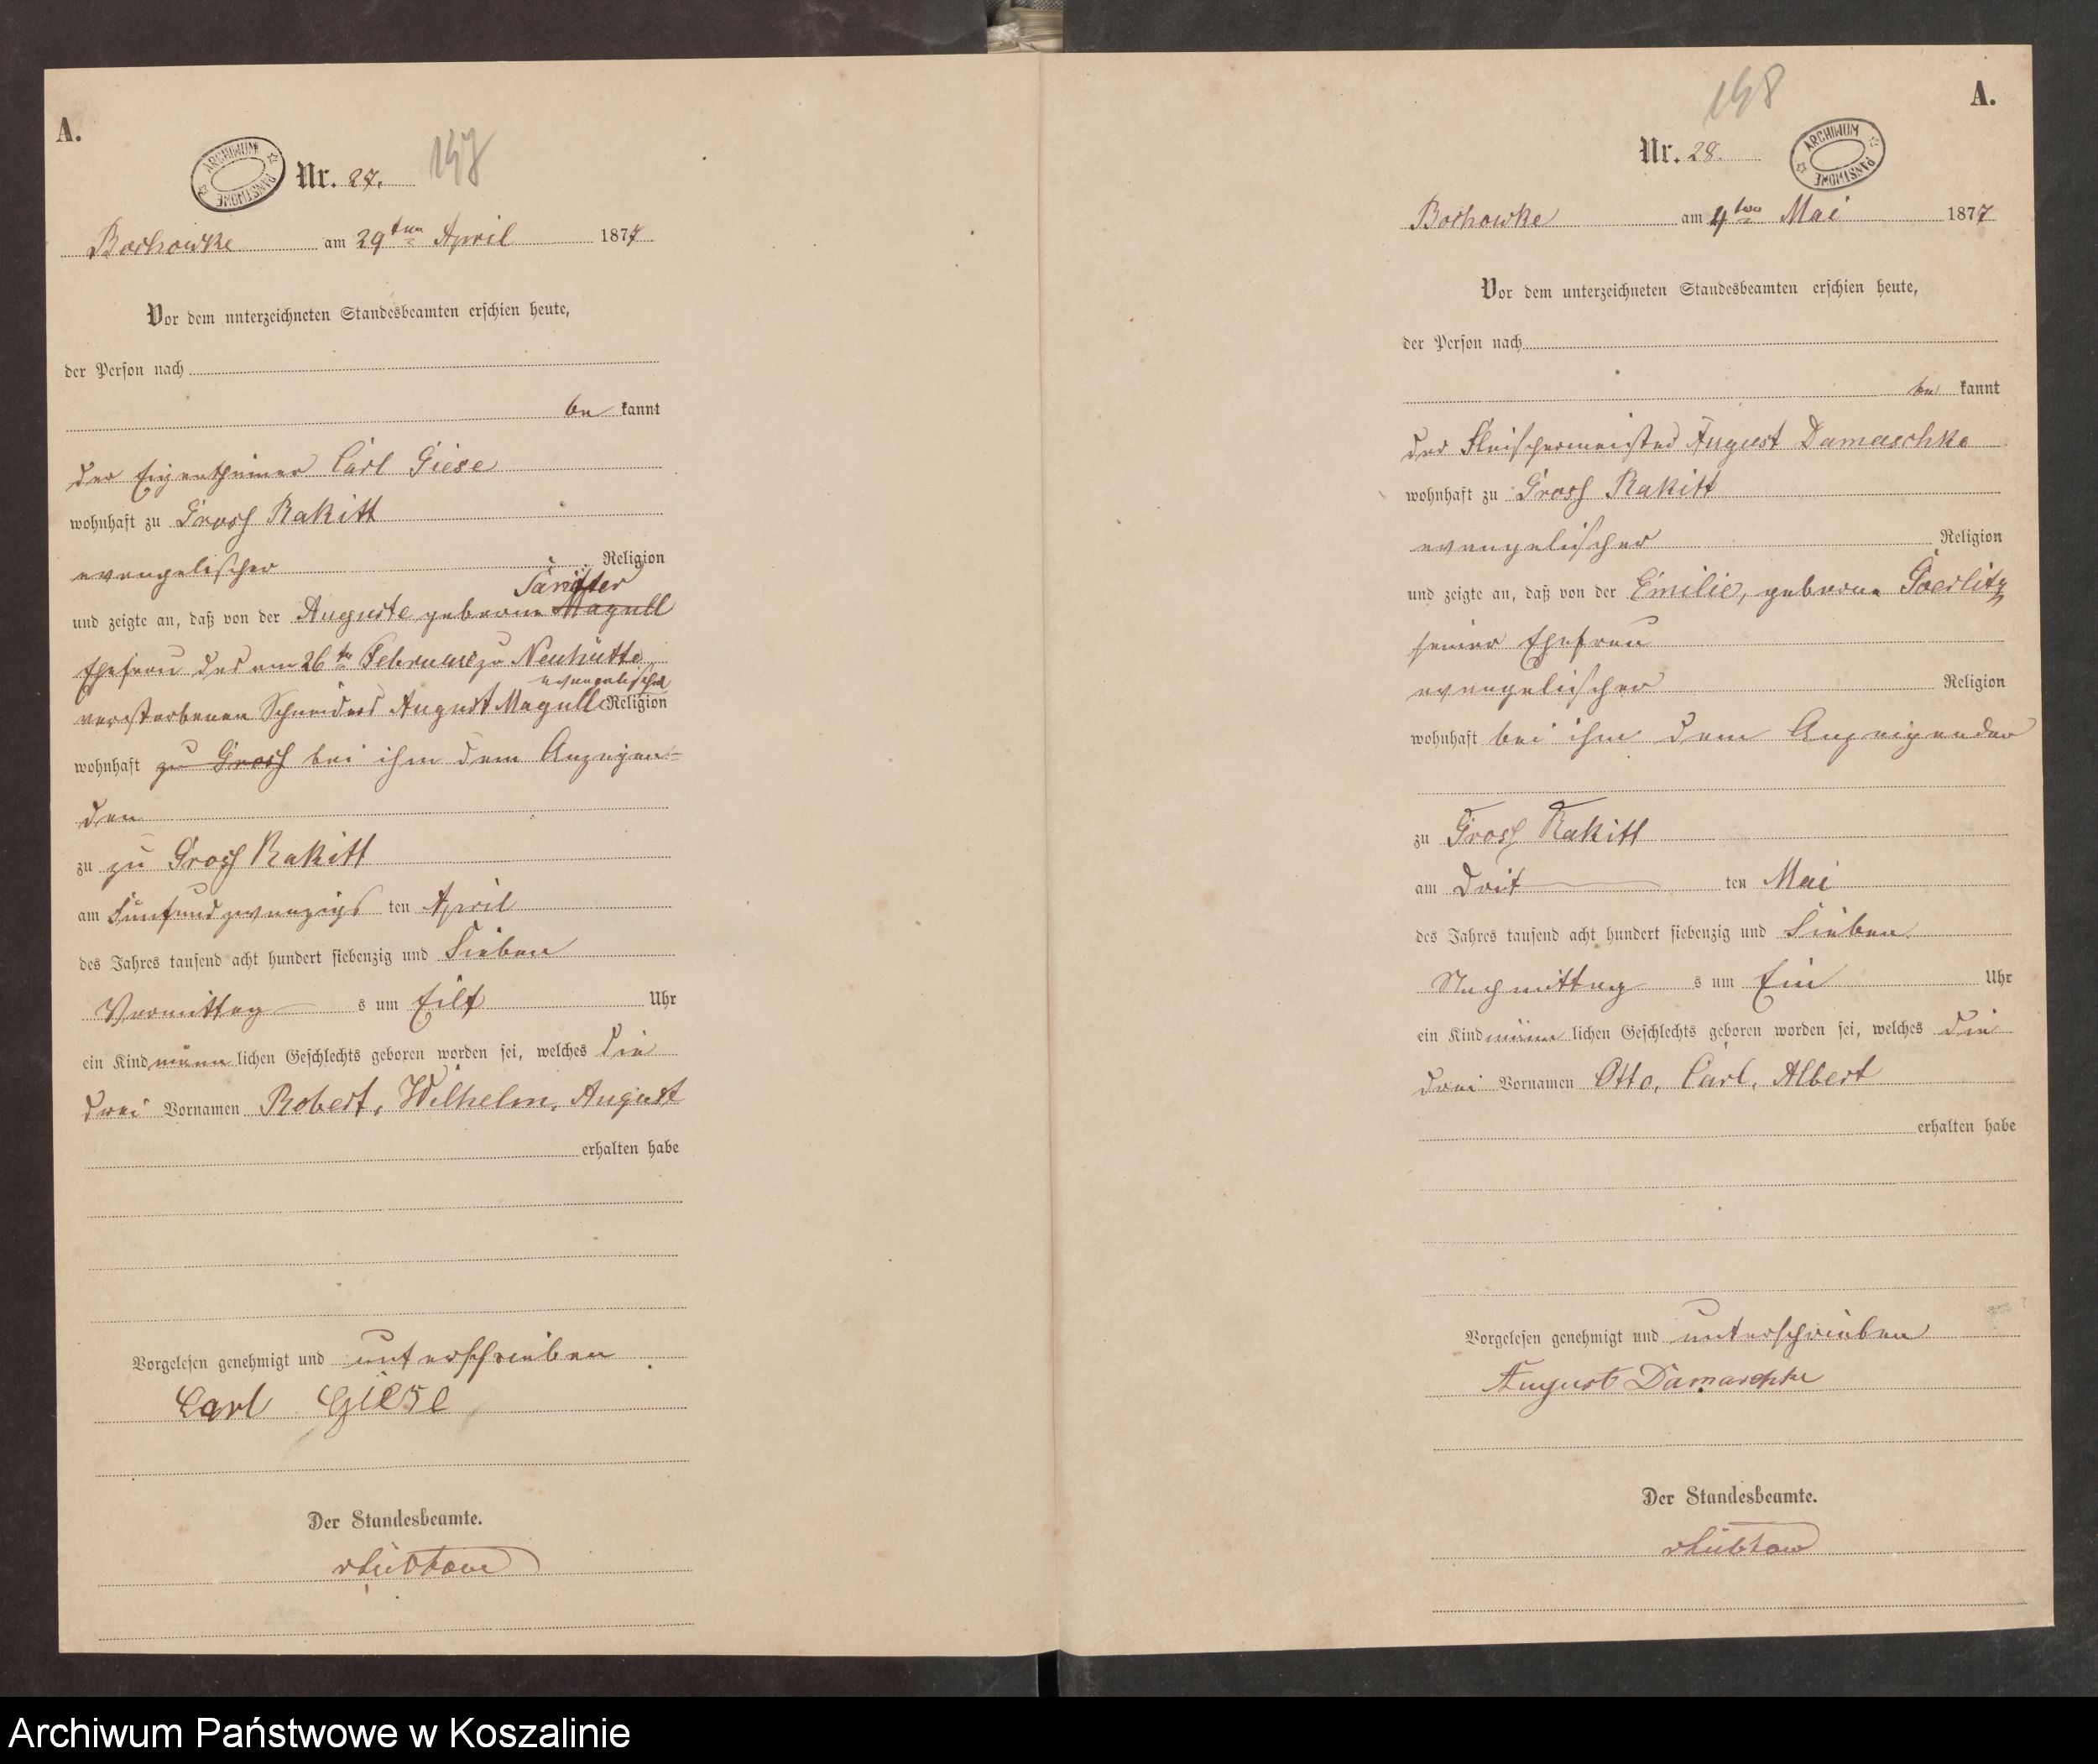 A.
ARCHIWUM PAŃSTWOWE
Nr. 27. 147
Bochowke am 29ten April 1877
Vor dem unterzeichneten Standesbeamten erschien heute,
der Person nach
be kannt
der Eigenthümer Carl Giese
wohnhaft zu Gross Rakitt
evangelischer Religion
und zeigte an, daß von der Auguste geborne Magull
Ehefrau des am 26ten Februar zu Neuhütte
evangelischer
verstorbenen Schneiders August Magull Religion
wohnhaft zu Gross bei ihm dem Anzeigen-
den
zu zu Gross Rakitt
am Fünfundzwanzigs ten April
des Jahres tausend acht hundert siebenzig und Sieben
Vormittag s um Eilf Uhr
ein Kind männ lichen Geschlechts geboren worden sei, welches die
drei Vornamen Robert, Wilhelm, August
erhalten habe
Vorgelesen genehmigt und unterschrieben
Carl Giese
Der Standesbeamte.
A.
148
Nr. 28.
ARCHIWUM PAŃSTWOWE
Bochowke am 4ten Mai 1877
Vor dem unterzeichneten Standesbeamten erschien heute,
der Person nach
be kannt
der Fleischermeister August Damaschke
wohnhaft zu Gross Rakitt
evangelischer Religion
und zeigte an, daß von der Emilie, geborne Goerlitz
seiner Ehefrau
evangelischer Religion
wohnhaft bei ihm dem Anzeigenden
zu Gross Rakitt
am Drit ten Mai
des Jahres tausend acht hundert siebenzig und Sieben
Nachmittag s um Ein Uhr
ein Kind männ lichen Geschlechts geboren worden sei, welches die
drei Vornamen Otto, Carl, Albert
erhalten habe
Vorgelesen genehmigt und unterschrieben
August Damaschke
Der Standesbeamte.
Archiwum Państwowe w Koszalinie